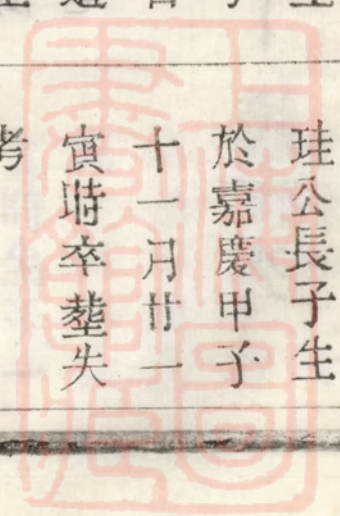 珪公長子生
於嘉慶甲子
十一月廿一
寅時卒塟失
考